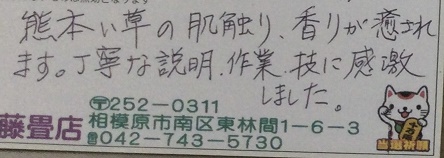 熊本い草の肌触り、香りが癒され
ます。丁寧な説明、作業、技に感激
しました。
藤畳店
〒252-0311
相模原市南区東林間1-6-3
☎042-743-5730
当選祈願